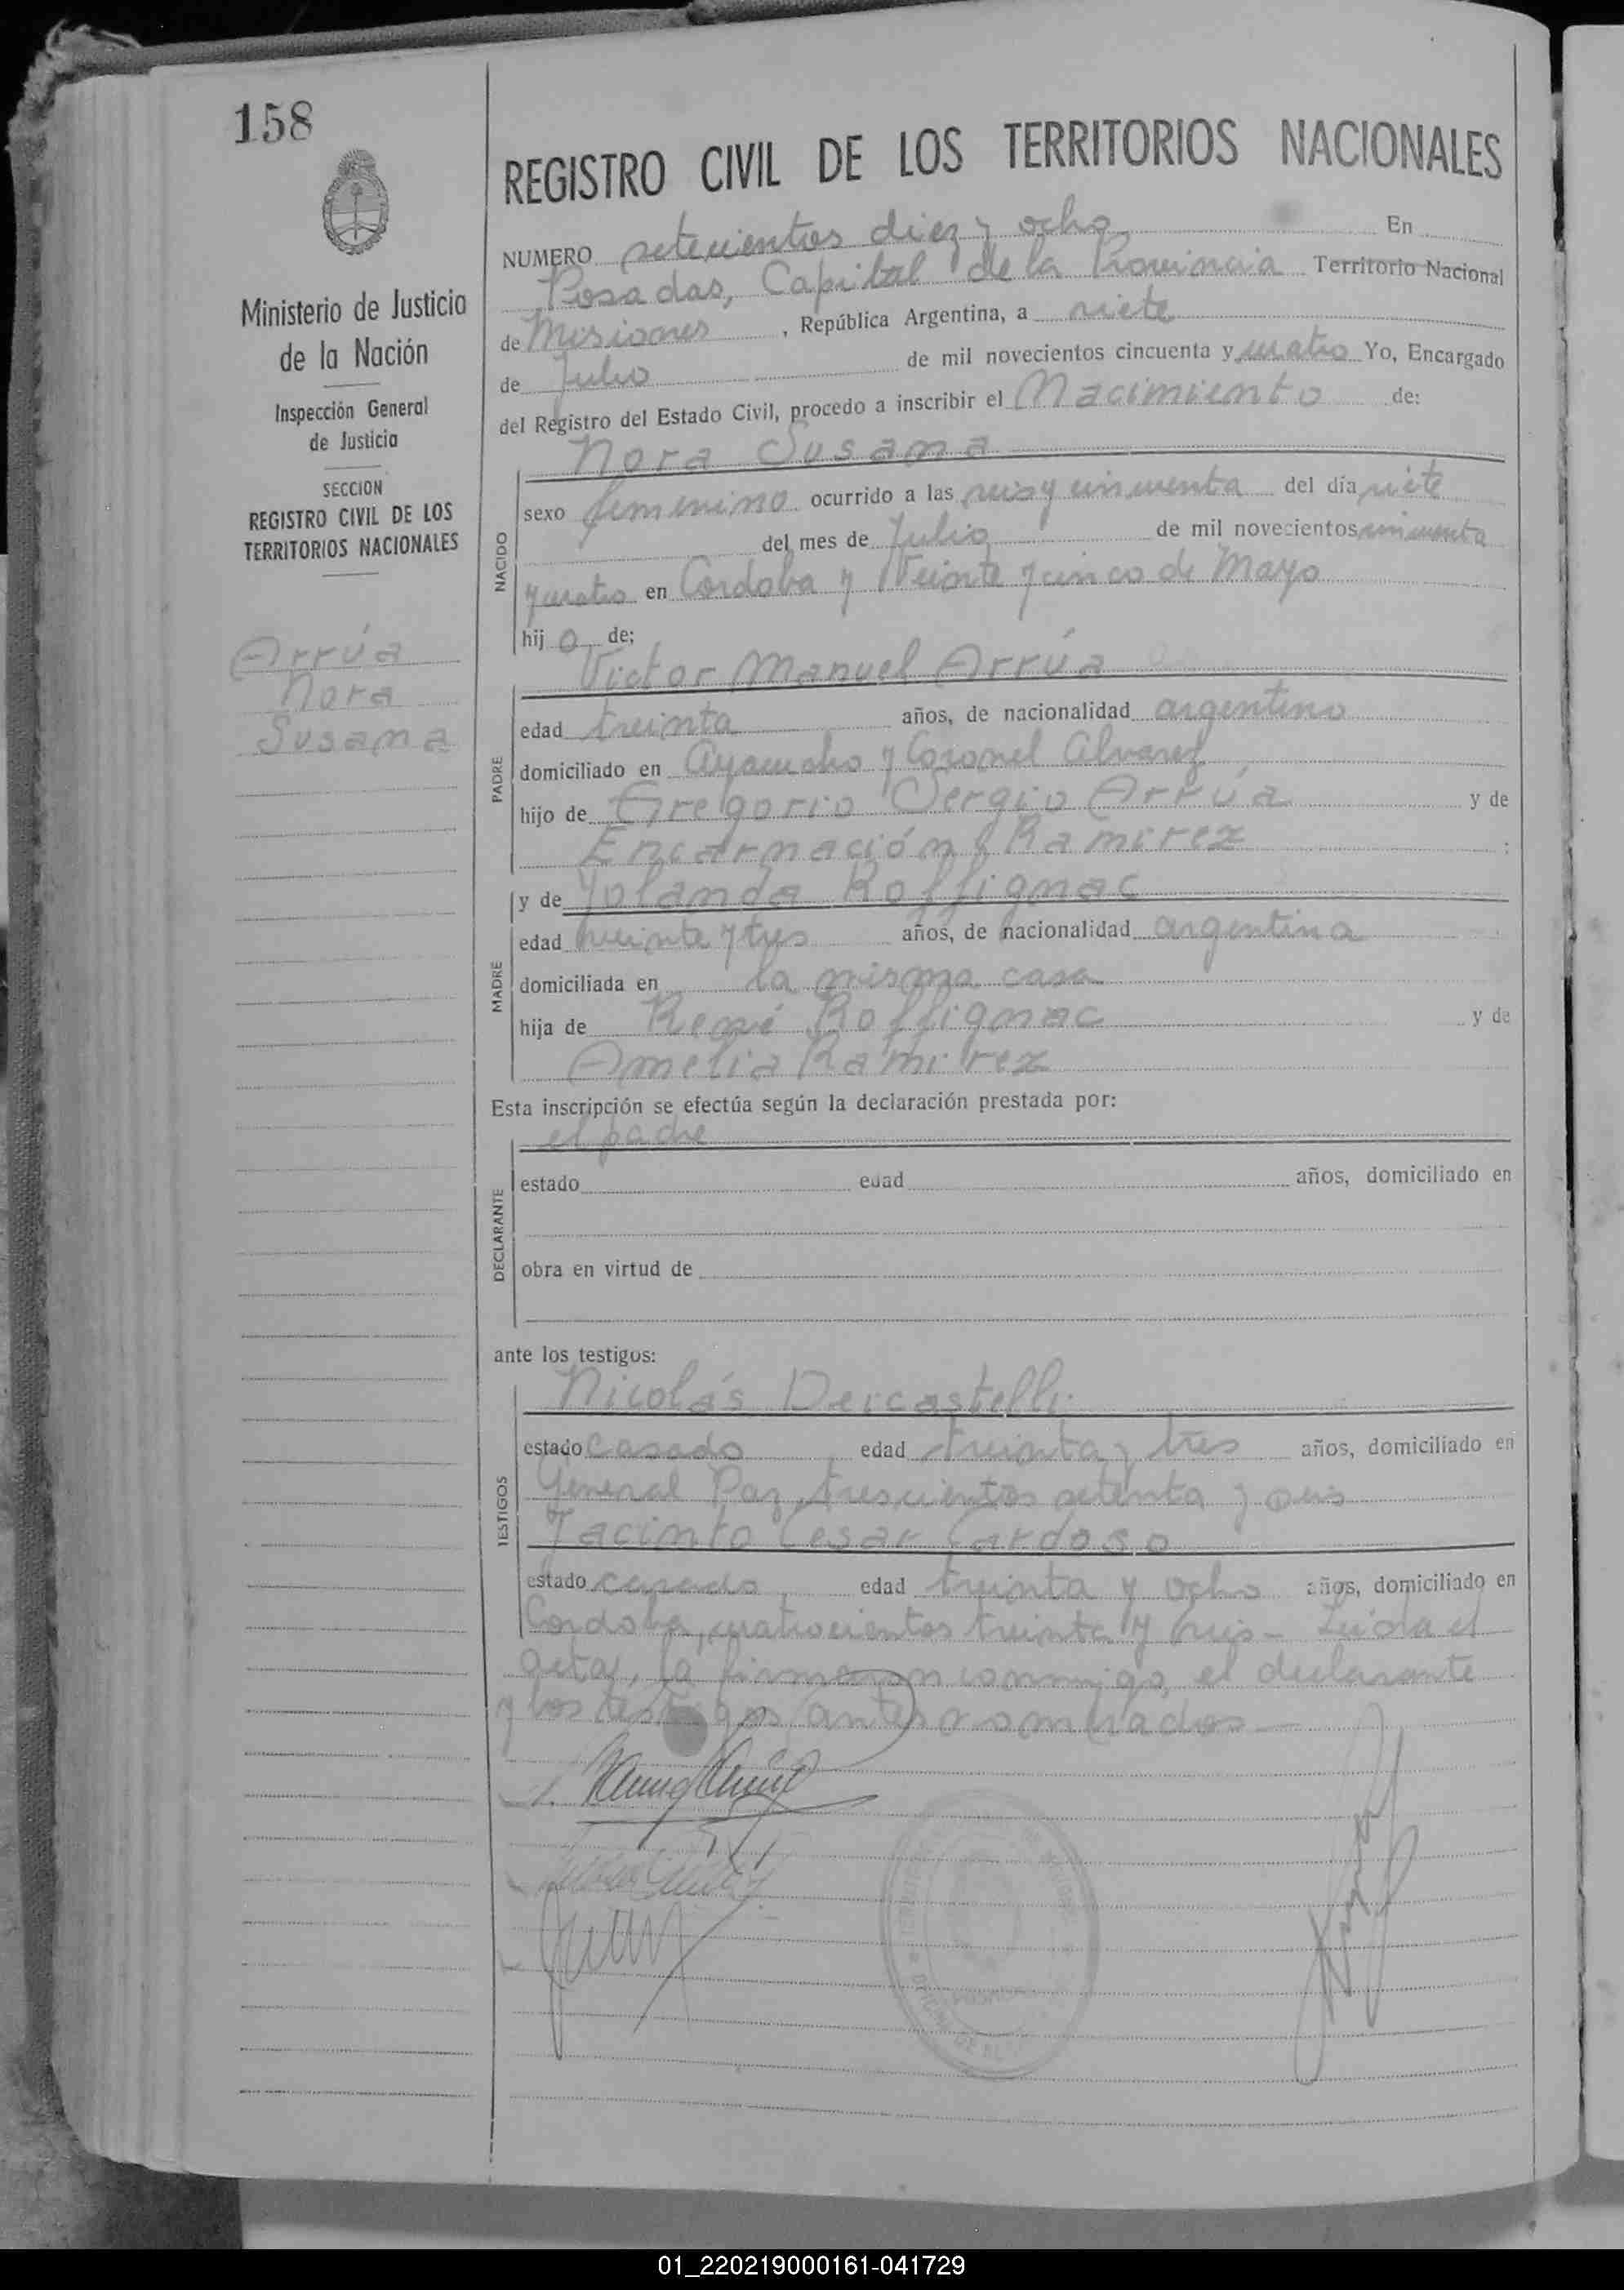 158
REGISTRO CIVIL DE LOS TERRITORIOS NACIONALES
Ministerio de Justicia
de la Nación
Inspección General
de Justicia
SECCION
REGISTRO CIVIL DE LOS
TERRITORIOS NACIONALES
Arrúa
Nora
Susana
NUMERO setecientos diez y ocho En
Posadas, Capital de la Provincia Territorio Nacional
de Misiones, República Argentina, a siete
de Julio de mil novecientos cincuenta y cuatro Yo, Encargado
del Registro del Estado Civil, procedo a inscribir el Nacimiento de:
Nora Susana
NACIDO
sexo femenino ocurrido a las seis y cincuenta del día siete
del mes de Julio de mil novecientos cincuenta
y cuatro en Cordoba y Veinte y cinco de Mayo
hij a de;
Victor Manuel Arrúa
PADRE
edad treinta años, de nacionalidad argentino
domiciliado en Ayacucho y Coronel Alvarez
hijo de Gregorio Sergio Arrúa y de
Encarnación Ramirez :
y de Yolanda Roffignac
MADRE
edad veinte y tres años, de nacionalidad argentina
domiciliada en la misma casa
hija de René Roffignac y de
Amelia Ramirez
Esta inscripción se efectúa según la declaración prestada por:
el padre
DECLARANTE
estado edad años, domiciliado en
obra en virtud de
ante los testigos:
Nicolás Deicastelli
TESTIGOS
estado casado edad treinta y tres años, domiciliado en
General Paz, trescientos setenta y seis
Jacinto Cesar Cardoso
estado casado edad treinta y ocho años, domiciliado en
Cordoba, cuatrocientos treinta y seis - Leida el
acta, la firmaron conmigo, el declarante
y los testigos antes nombrados -
01_220219000161-041729